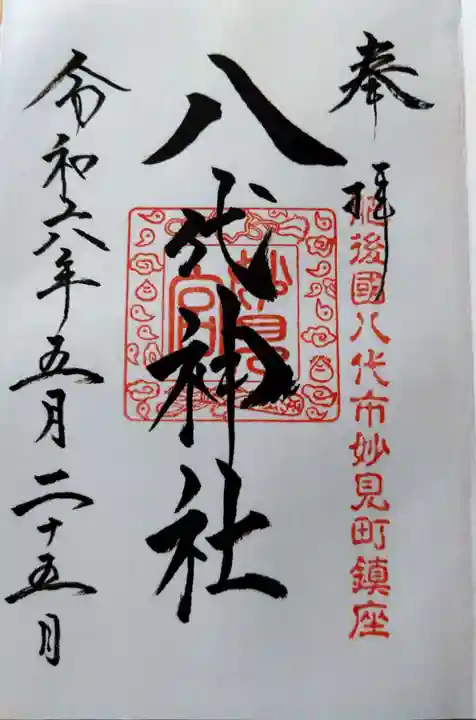 奉拝
肥後國八代市妙見町鎮座
八代神社
妙見宮
令和六年五月二十五月